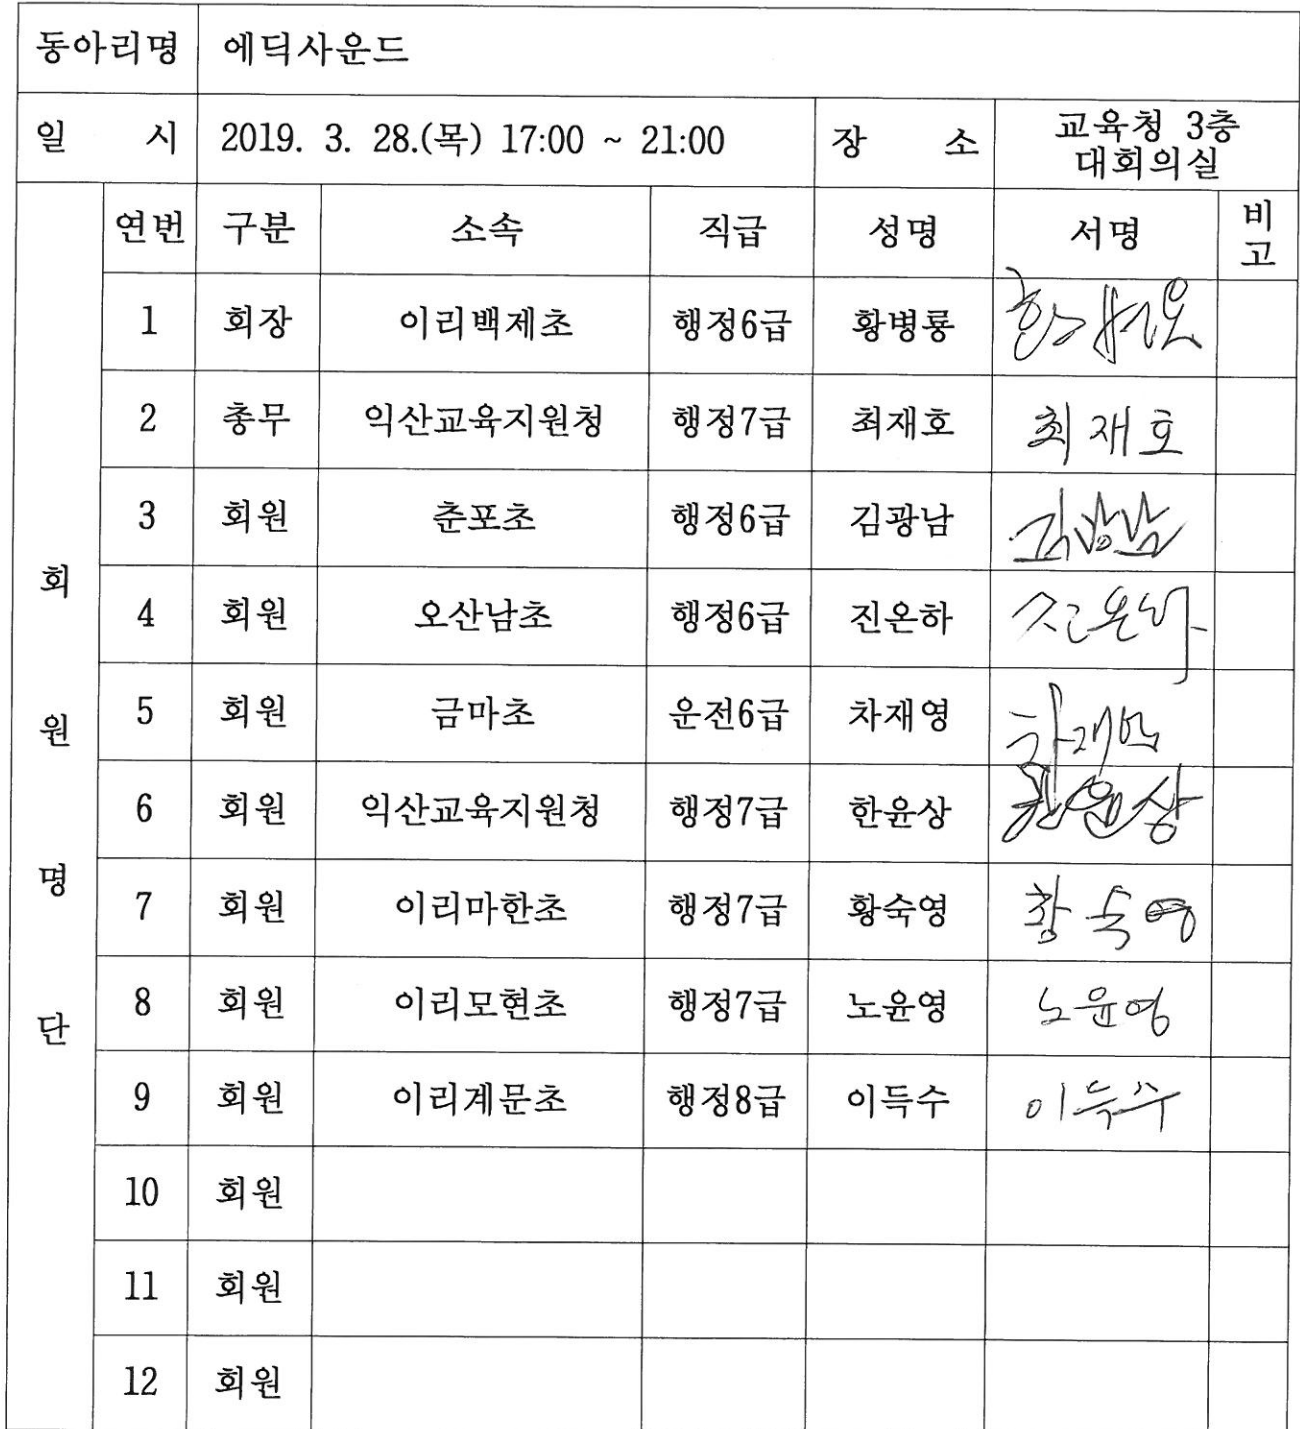 동아리명 에딕사운드
일 시 2019. 3. 28.(목) 17:00 ~ 21:00 장 소 교육청 3층 대회의실
회원명단
연번 구분 소속 직급 성명 서명 비고
1 회장 이리백제초 행정6급 황병룡
2 총무 익산교육지원청 행정7급 최재호 최재호
3 회원 춘포초 행정6급 김광남 김광남
4 회원 오산남초 행정6급 진온하 진온하
5 회원 금마초 운전6급 차재영 차재영
6 회원 익산교육지원청 행정7급 한윤상 한윤상
7 회원 이리마한초 행정7급 황숙영 황숙영
8 회원 이리모현초 행정7급 노윤영 노윤영
9 회원 이리계문초 행정8급 이득수 이득수
10 회원
11 회원
12 회원